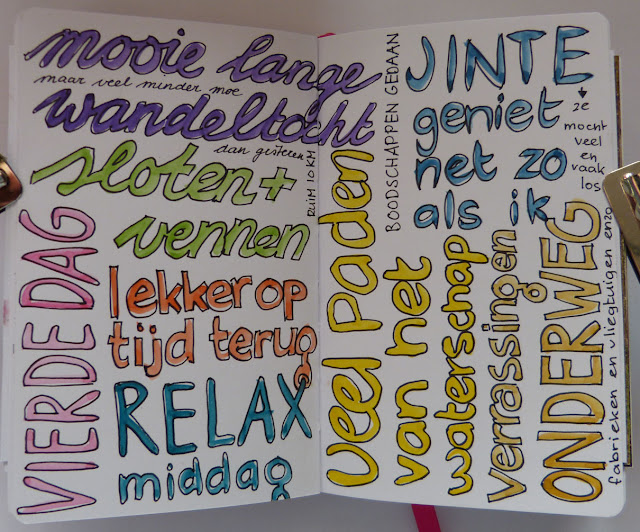 mooie lange
maar veel minder moe
wandeltocht
dan gisteren
RUIM 10 KM
sloten +
vennen
VIERDE DAG
lekker op
tijd terug
RELAX
middag
BOODSCHAPPEN GEDAAN
JINTE
geniet
net zo
als ik
ze
mocht
veel
en
vaak
los
veel paden
van het
waterschap
verrassingen
ONDERWEG
fabrieken en vliegtuigen enzo